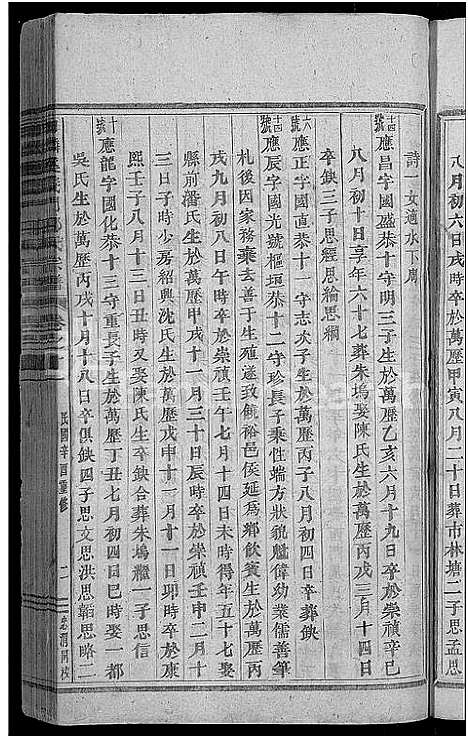 八月初六日戌時卒於萬歷甲寅八月二十日葬市林塘二子思孟思
詩一女適水下厲
十四號應昌字國盛恭十守明三子生於萬歷乙亥六月十九日卒於崇禎辛巳
八月初十日享年六十七葬朱塢娶陳氏生於萬歷丙戌三月十四日
卒缺三子思經思綸思綱
十六號應正字國直恭十一守志次子生於萬歷丙子八月初四日卒葬缺
十四號應辰字國光號樞垣恭十二守珍長子秉性端方狀貌魁偉幼業儒善筆
札後因家務棄去善于生殖遂致饒裕邑侯延爲鄉飲賓生於萬歷丙
戌九月初八日午時卒於崇禎壬午七月十四日未時得年五十七娶
縣前潘氏生於萬歷甲戌十一月三十日辰時卒於崇禎壬申二月十
三日子時少房紹興沈氏生於萬歷戊申十二月十一日卯時卒於康
熙壬子八月十三日丑時又娶陳氏生卒缺合葬朱塢繼一子思信
十號應龍字國化恭十三守重長子生於萬歷丁丑七月初四日巳時娶一都
吳氏生於萬歷丙戌十月十八日卒俱缺四子思文思洪思韜思略二
民國辛酉重修 二